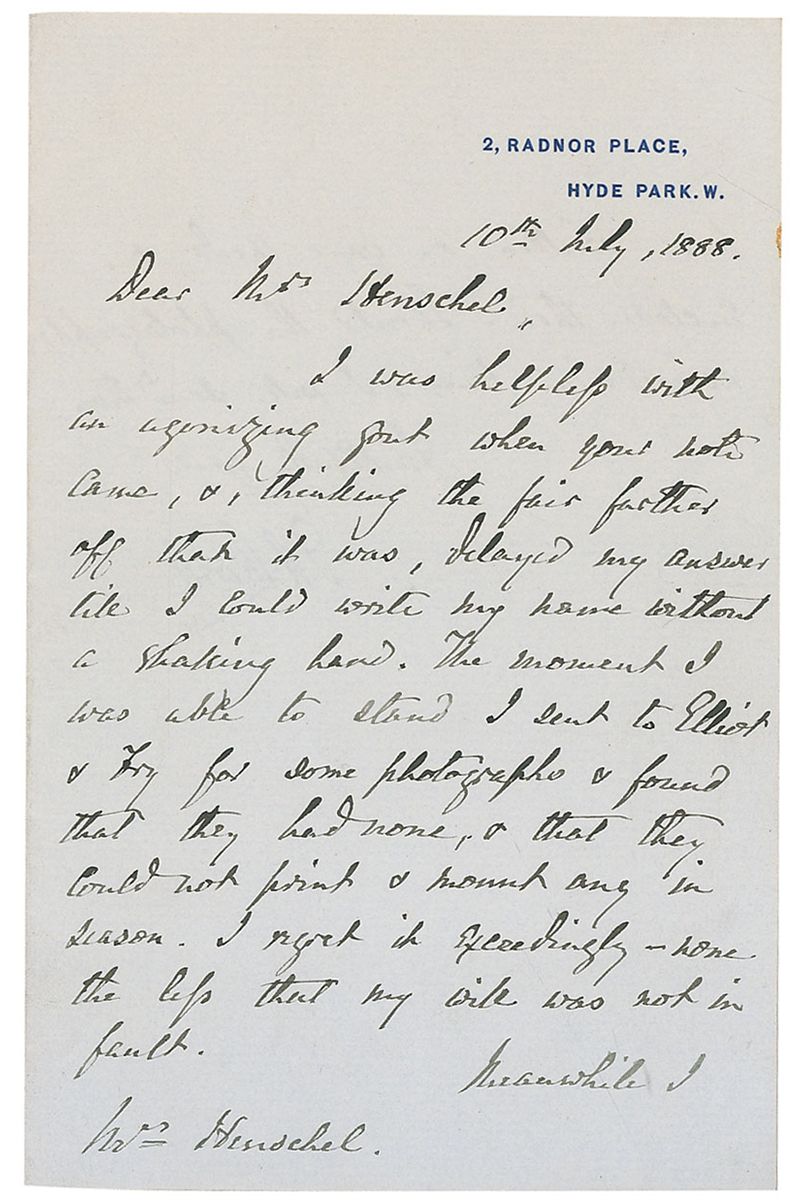 2, RADNOR PLACE,
HYDE PARK. W.
10th July, 1888.
Dear Mrs Henschel,
I was helpless with
an agonizing gout when your note
came, &, thinking the fair further
off than it was, delayed my answer
till I could write my name without
a shaking hand. The moment I
was able to stand I sent to Elliot
& Fry for some photographs & found
that they had none, & that they
could not print & mount any in
season. I regret it exceedingly – none
the less that my will was not in
fault.
Meanwhile I
Mrs Henschel.